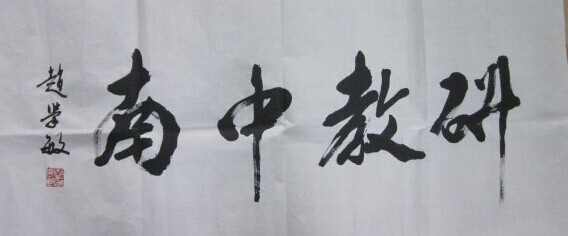 南中教研
趙学敏